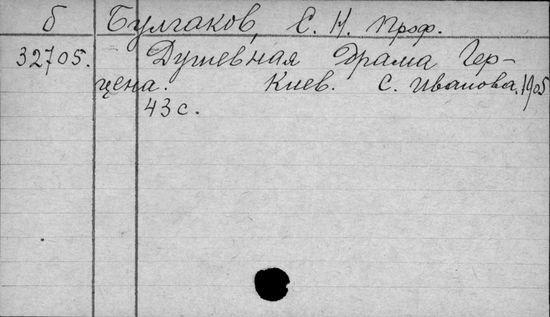 б Булгаков, С. Н. проф.
32705. Душевная драма Гер-
цена. Киев. С. Иванова. 1905
43 с.